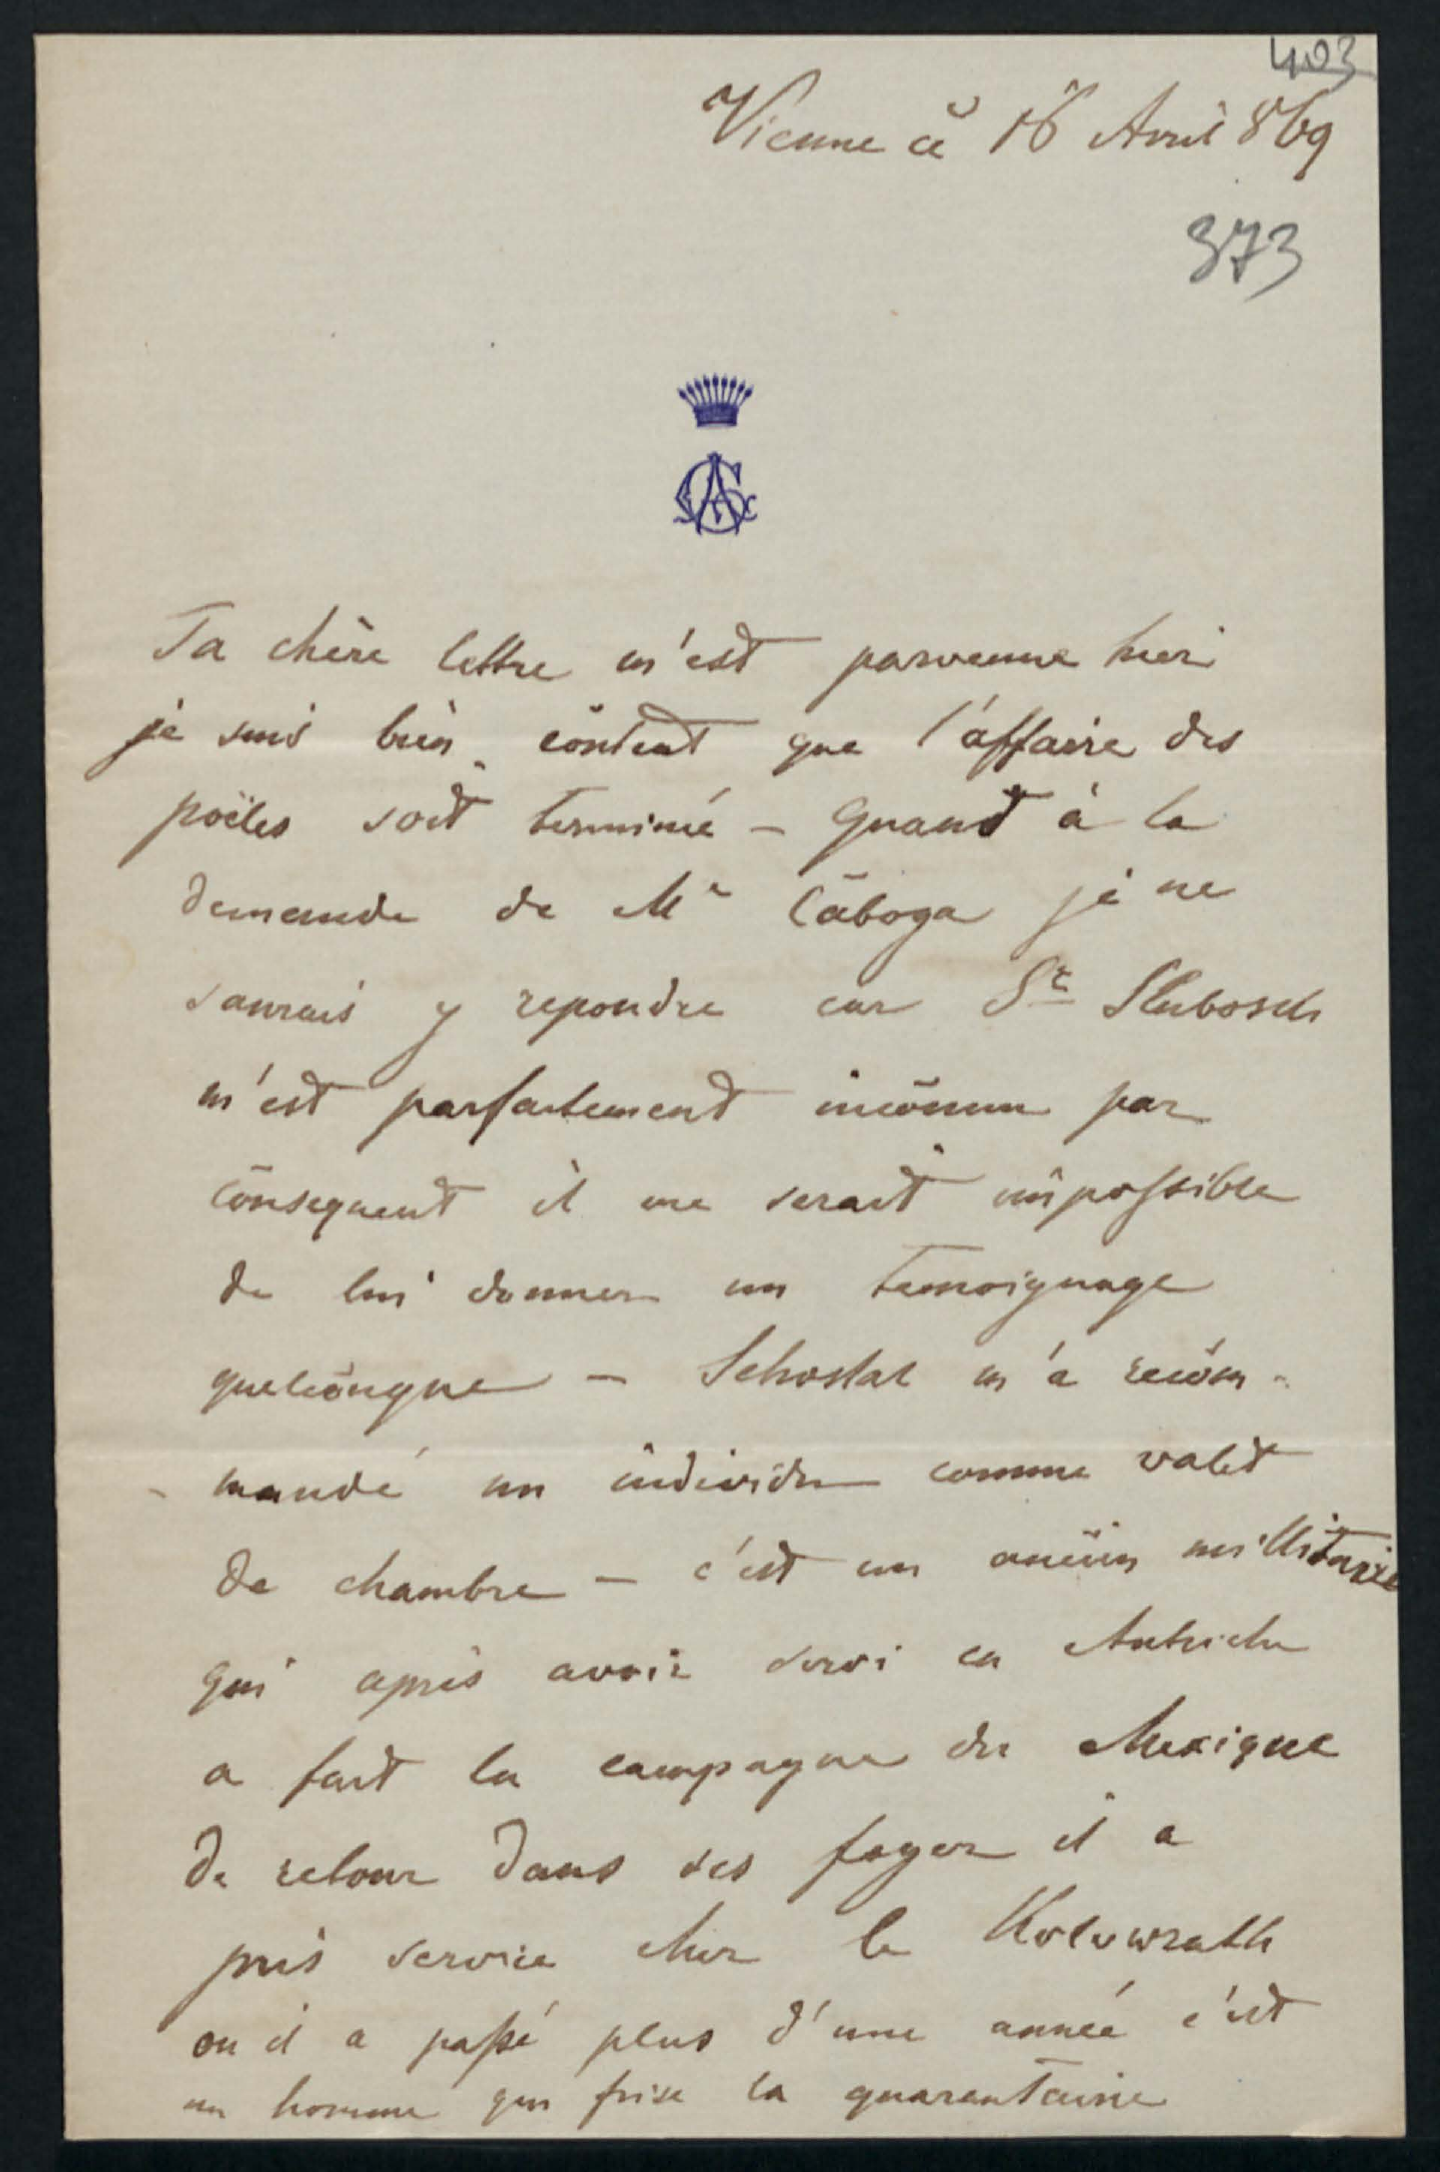 403
Vienne ce 16 Avril 869
373
Ta chère lettre m'est parvenue hier
je suis bien content que l'affaire des
poëles soit terminé – Quand à la
demande de Mr Cāboga je ne
saurais y repondre car St Slubosch
m'est parfaitement incōnnu par
cōnsequent il me serait impossible
de lui donner un temoignage
quelcōnque – Schostal m'a recōm-
mandé un individu comme valet
de chambre – c'est un ancien millitaire
qui après avoir servi en Autriche
a fait la campagne du Mexique
de retour dans ses foyer il a
pris service chez le Kolowrath
ou il a passé plus d'une année c'est
un homme qui frise la quarantaine